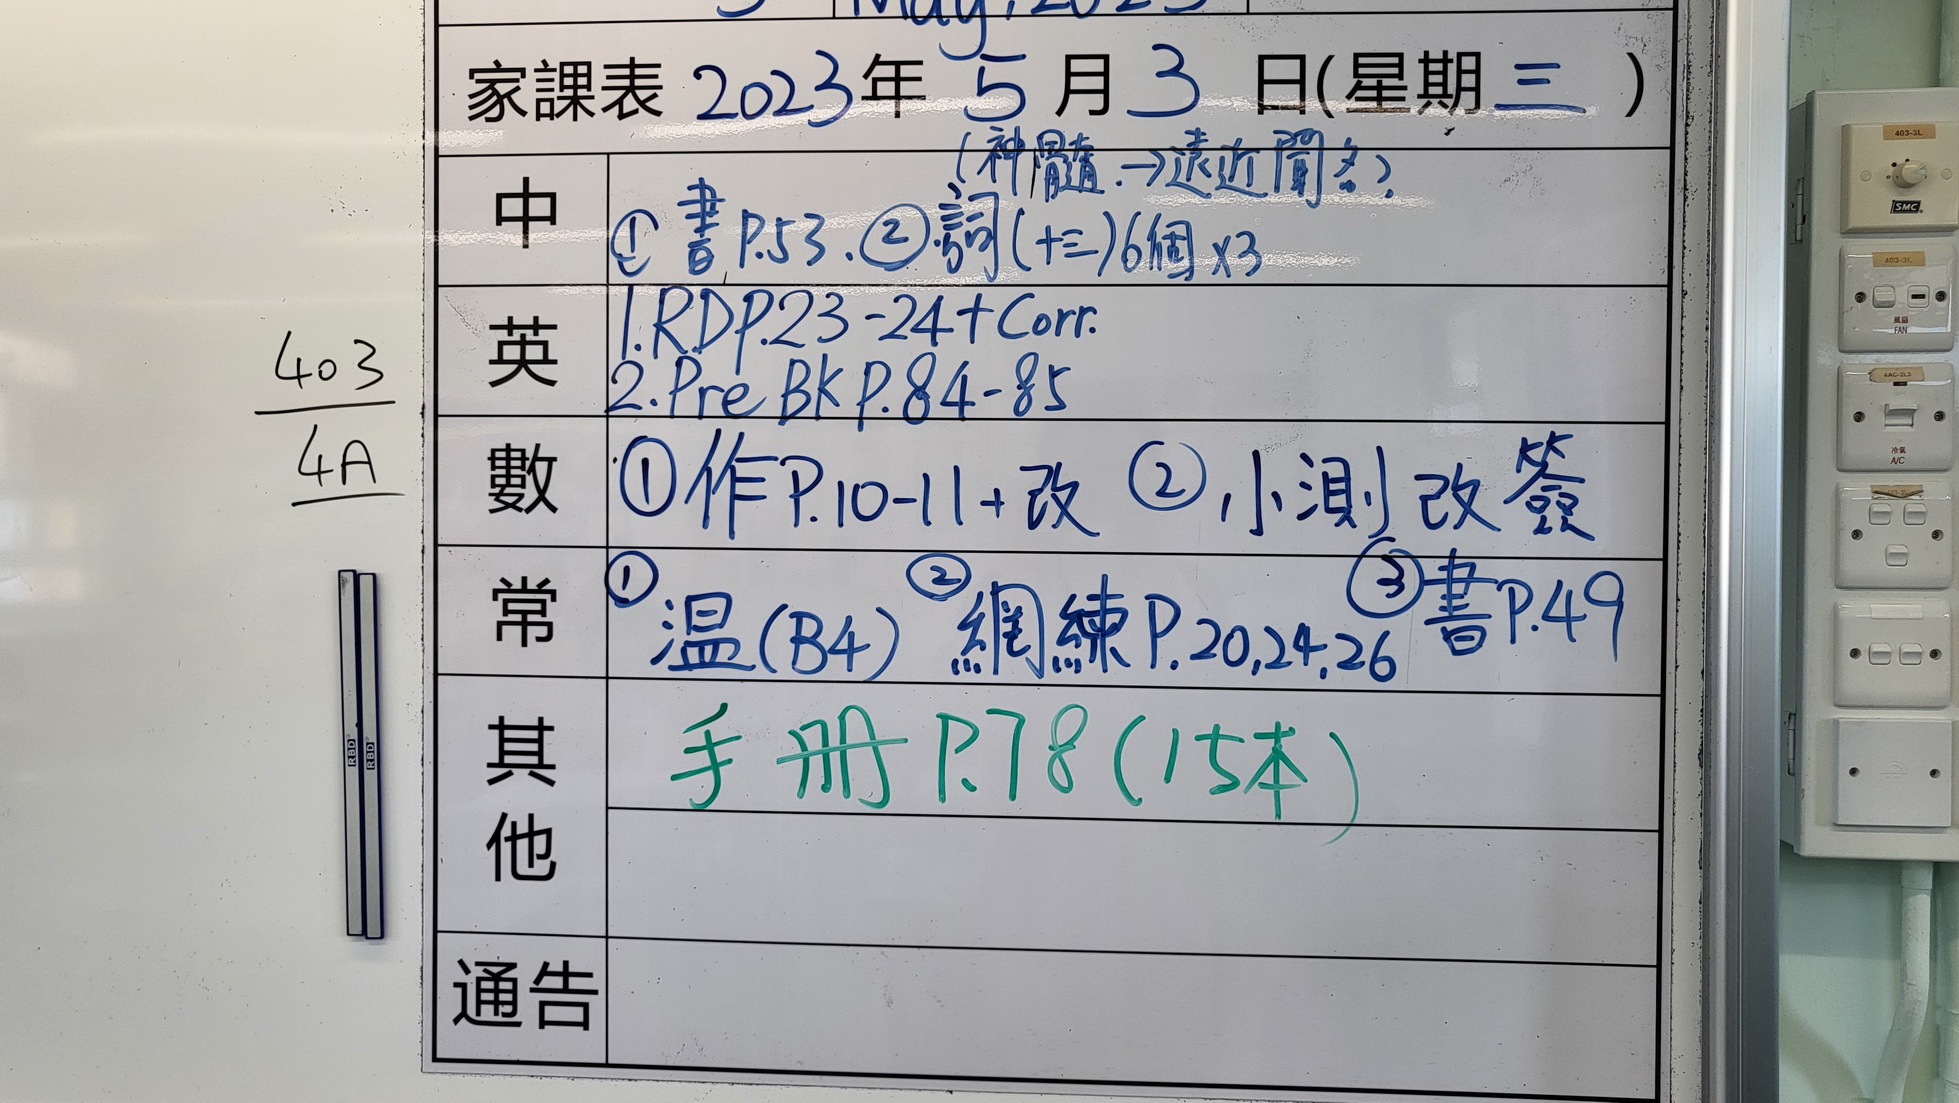 May, 2023
家課表 2023年 5月3日(星期三)
中
(神髓→遠近聞名)
① 書P.53. ② 詞(十三)6個x3
英
1.RDP.23-24+Corr.
2.Pre BK P.84-85
數
①作P.10-11+改 ②小測改簽
常
①温(B4) ②網練P.20,24,26 ③書P.49
其他
手册P.78(15本)
通告
403
4A
RBD
RBD
403-3L
SMC
403-3L
風扇
FAN
4AC-2L3
冷氣
A/C